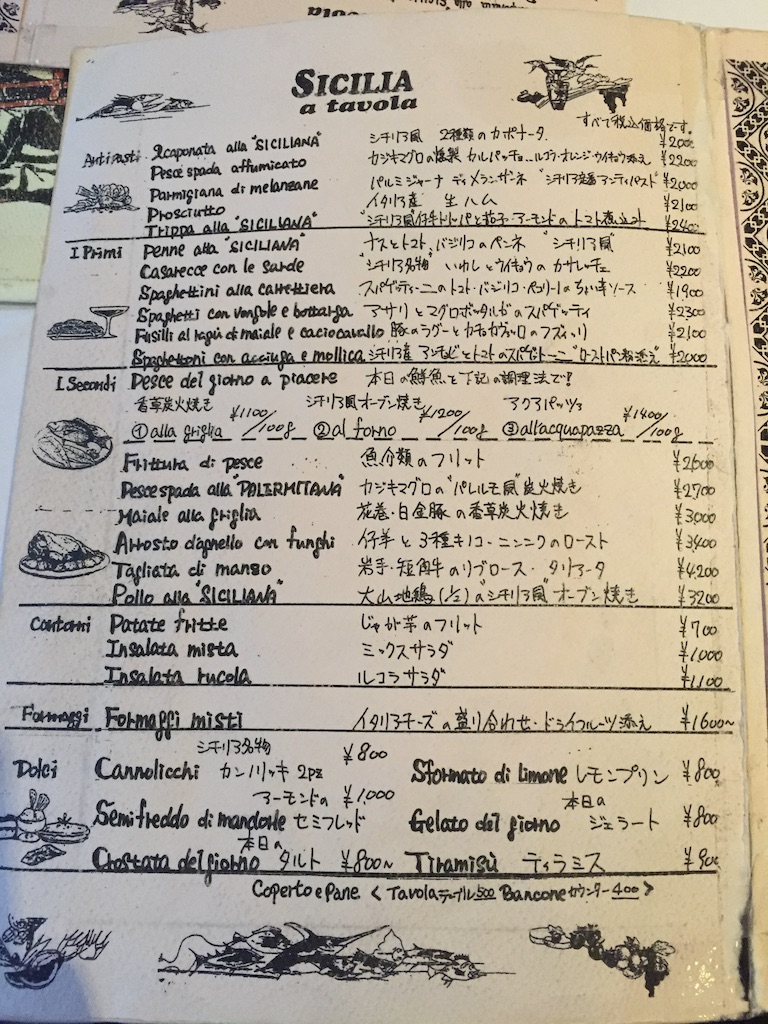 SICILIA
a tavola
すべて税込価格です。
Antipasti 2caponata alla "SICILIANA" シチリア風 2種類のカポナータ ¥2000
Pesce spada affumicato カジキマグロの燻製 カルパッチョ...ルコラ・オレンジ・ウイキョウ添え ¥2200
Parmigiana di melanzane パルミジャーナ ディ メランザーネ "シチリア定番アンティパスト" ¥2000
Prosciutto イタリア産 生ハム ¥2100
Trippa alla "SICILIANA" "シチリア風"仔牛トリッパと茄子・アーモンドのトマト煮込み ¥2400
I Primi Penne alla "SICILIANA" ナスとトマト、バジリコのペンネ "シチリア風" ¥2100
Casarecce con le sarde "シチリア名物" いわしとウイキョウの カサレッチェ ¥2200
Spaghettini alla carrettiera スパゲッティーニのトマト・バジリコ・ペコリーノ ソース ¥1900
Spaghetti con vongole e bottarga アサリとマグロボッタルガのスパゲッティ ¥2300
Fusilli al ragù di maiale e caciocavallo 豚のラグーとカチョカヴァッロのフズィッリ ¥2100
Spaghettoni con acciuga e mollica シチリア産 アンチョビとトマトのスパゲットーニ "ローストパン粉添え" ¥2000
I Secondi Pesce del giorno a piacere 本日の鮮魚を下記の調理法で!
香草炭火焼き ¥1100/100g シチリア風オーブン焼き ¥1200/100g アクアパッツァ ¥1400/100g
①alla griglia ②al forno ③all'acquapazza
Frittura di pesce 魚介類のフリット ¥2600
Pesce spada alla "PALERMITANA" カジキマグロの"パレルモ風"炭火焼き ¥2700
Maiale alla griglia 花巻・白金豚の香草炭火焼き ¥3000
Arrosto d'agnello con funghi 仔羊と3種キノコ・ニンニクのロースト ¥3400
Tagliata di manzo 岩手・短角牛のリブロース・タリアータ ¥4,200
Pollo alla "SICILIANA" 大山地鶏(1/2)の"シチリア風"オーブン焼き ¥3200
Contorni Patate fritte じゃが芋のフリット ¥700
Insalata mista ミックスサラダ ¥1,000
Insalata rucola ルコラサラダ ¥1,100
Formaggi Formaggi misti イタリアチーズの盛り合わせ・ドライフルーツ添え ¥1600~
シチリア名物
Dolci Cannolicchi カンノリッキ 2pz ¥800 Sformato di limone レモンプリン ¥800
アーモンドの 本日の
Semifreddo di mandorle セミフレッド ¥1,000 Gelato del giorno ジェラート ¥800
本日の
Crostata del giorno タルト ¥800~ Tiramisù ティラミス ¥900
Coperto e Pane < Tavola テーブル 500 Bancone カウンター 400 >